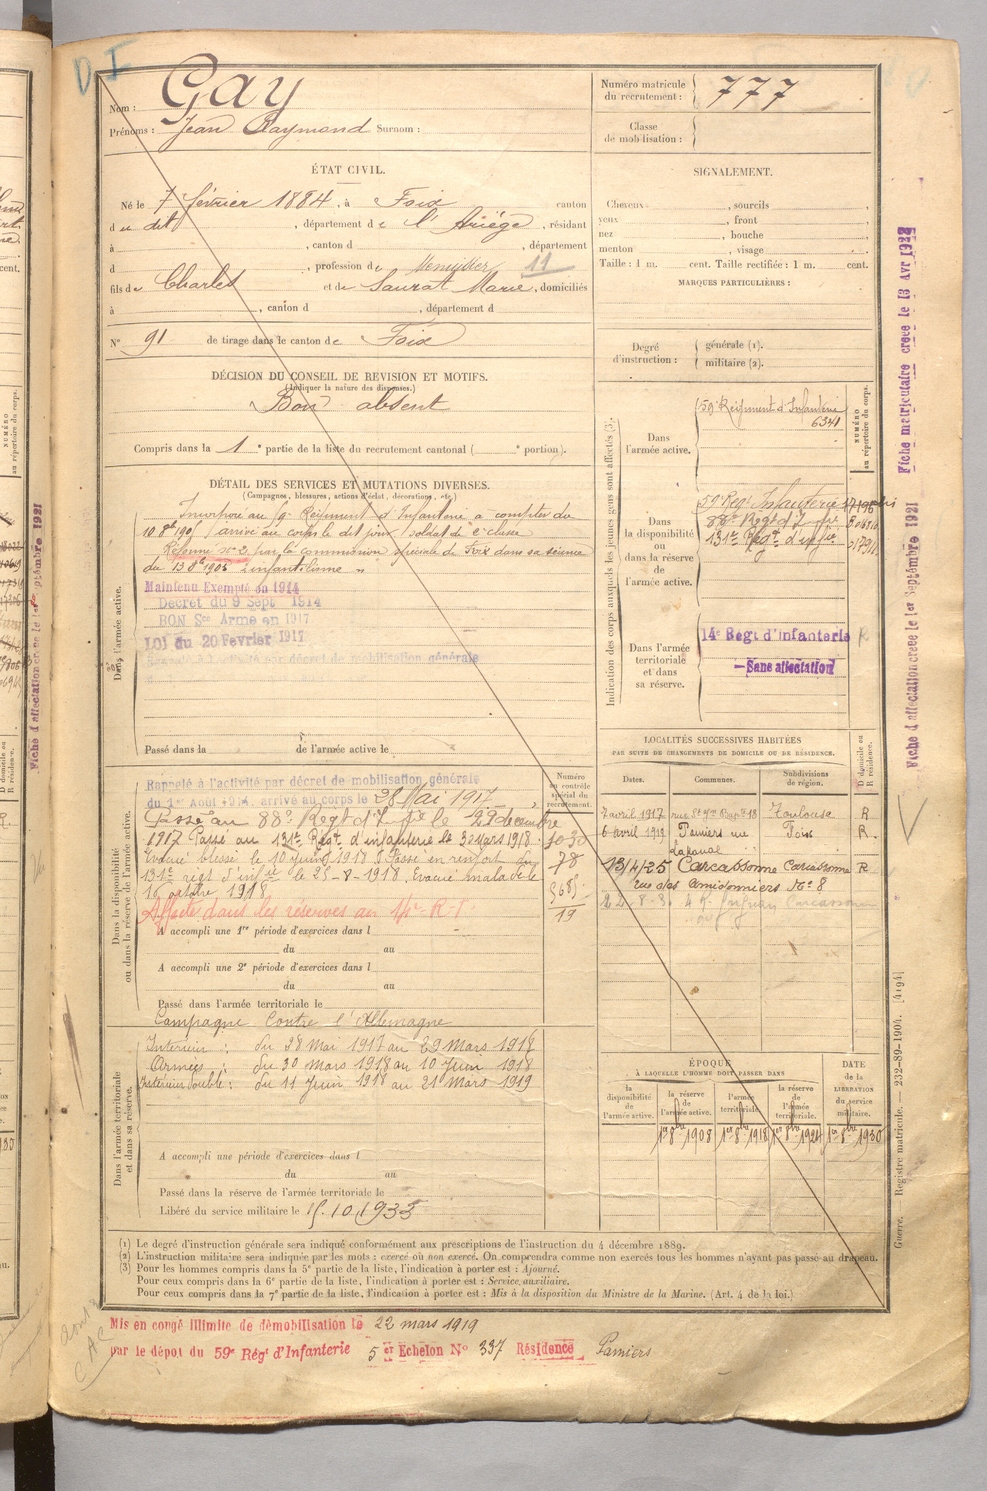 D. I
Nom : Gay
Prénoms : Jean Raymond Surnom :
Numéro matricule du recrutement : 777
Classe de mobilisation :
ÉTAT CIVIL.
Né le 7 février 1884, à Foix canton
du dit, département de l'Ariège, résidant
à , canton d , département
d , profession de Menuisier 11
fils de Charles et de Saurat Marie, domiciliés
à , canton d , département d
N° 91 de tirage dans le canton de Foix
SIGNALEMENT.
Cheveux , sourcils ,
yeux , front ,
nez , bouche ,
menton , visage .
Taille : 1 m. cent. Taille rectifiée : 1 m. cent.
MARQUES PARTICULIÈRES :
Degré d'instruction : générale (1).
militaire (2).
DÉCISION DU CONSEIL DE REVISION ET MOTIFS.
(Indiquer la nature des dispenses.)
Bon absent
Compris dans la 1e partie de la liste du recrutement cantonal ( e portion).
DÉTAIL DES SERVICES ET MUTATIONS DIVERSES.
(Campagnes, blessures, actions d'éclat, décorations, etc.)
Dans l'armée active.
Incorporé au 59e Régiment d'Infanterie à compter du
10 8bre 1905 arrivé au corps le dit jour, soldat de 2e classe
Réformé n° 2 par la commission spéciale de Foix dans sa séance
du 13 8bre 1905 "infantilisme"
Maintenu Exempté en 1914
Décret du 9 Sept 1914
BON Sce Armé en 1917
LOI du 20 Février 1917
Rappelé à l'activité par décret de mobilisation générale
Passé dans la de l'armée active le
Dans la disponibilité ou dans la réserve de l'armée active.
Rappelé à l'activité par décret de mobilisation générale
du 1er Août 1914, arrivé au corps le 28 Mai 1917,
Passé au 88e Régt d'Inf le 29 décembre
1917 Passé au 131e Régt d'infanterie le 30 Mars 1918
Evacué blessé le 10 Juin 1917 Passé en renfort du
131e régt d'infie le 25-8-1918, Evacué malade le
16 octobre 1918
Affecté dans les réserves au
A accompli une 1re période d'exercices dans l
du au
A accompli une 2e période d'exercices dans l
du au
Passé dans l'armée territoriale le
Campagne contre l'Allemagne
Dans l'armée territoriale et dans sa réserve.
Intérieur : du 28 Mai 1917 au 29 Mars 1918
Armées : du 30 mars 1918 au 10 Juin 1918
Intérieur double : du 11 Juin 1918 au 21 Mars 1919
A accompli une période d'exercices dans l
du au
Passé dans la réserve de l'armée territoriale le
Libéré du service militaire le 15.10.1933
Numéro au contrôle spécial du recrutement.
3030
78
5685
19
Indication des corps auxquels les jeunes gens sont affectés (3).
NUMÉRO au répertoire du corps.
Dans l'armée active.
59e Régiment d'Infanterie
6341
Dans la disponibilité ou dans la réserve de l'armée active.
59e Regt Infanterie
88e Regt d'Inf
131e Regt d'infie
Dans l'armée territoriale et dans sa réserve.
14e Regt d'Infanterie R
— Sans affectation
LOCALITÉS SUCCESSIVES HABITÉES
PAR SUITE DE CHANGEMENTS DE DOMICILE OU DE RÉSIDENCE.
Dates. Communes. Subdivisions de région. D domicile ou R résidence.
7 avril 1917 Toulouse R
6 avril 1919 Pamiers rue Foix R.
13/4/25 Carcassonne Carcassonne R
rue des Amidonniers N° 8
Carcassonne
ÉPOQUE
À LAQUELLE L'HOMME DOIT PASSER DANS
la disponibilité de l'armée active.
la réserve de l'armée active.
l'armée territoriale.
la réserve de l'armée territoriale.
DATE de la LIBÉRATION du service militaire.
1er 8bre 1908 1er 8bre 1918 1er 8bre 1924 1er 8bre 1930
(1) Le degré d'instruction générale sera indiqué conformément aux prescriptions de l'instruction du 4 décembre 1889.
(2) L'instruction militaire sera indiquée par les mots : exercé où non exercé. On comprendra comme non exercés tous les hommes n'ayant pas passé au drapeau.
(3) Pour les hommes compris dans la 5e partie de la liste, l'indication à porter est : Ajourné.
Pour ceux compris dans la 6e partie de la liste, l'indication à porter est : Service auxiliaire.
Pour ceux compris dans la 7e partie de la liste, l'indication à porter est : Mis à la disposition du Ministre de la Marine. (Art. 4 de la loi.)
Mis en congé illimité de démobilisation le 22 mars 1919
par le dépot du 59e Régt d'Infanterie 5 er Echelon N° 337 Résidence Pamiers
Fiche matriculaire créée le 13 Avr 1922
Fiche d'affectation créée le 1er Septembre 1921
Guerre. Registre matricule. — 232-89-1904. [4194]
Fiche d'affectation créée le 1er Septembre 1921